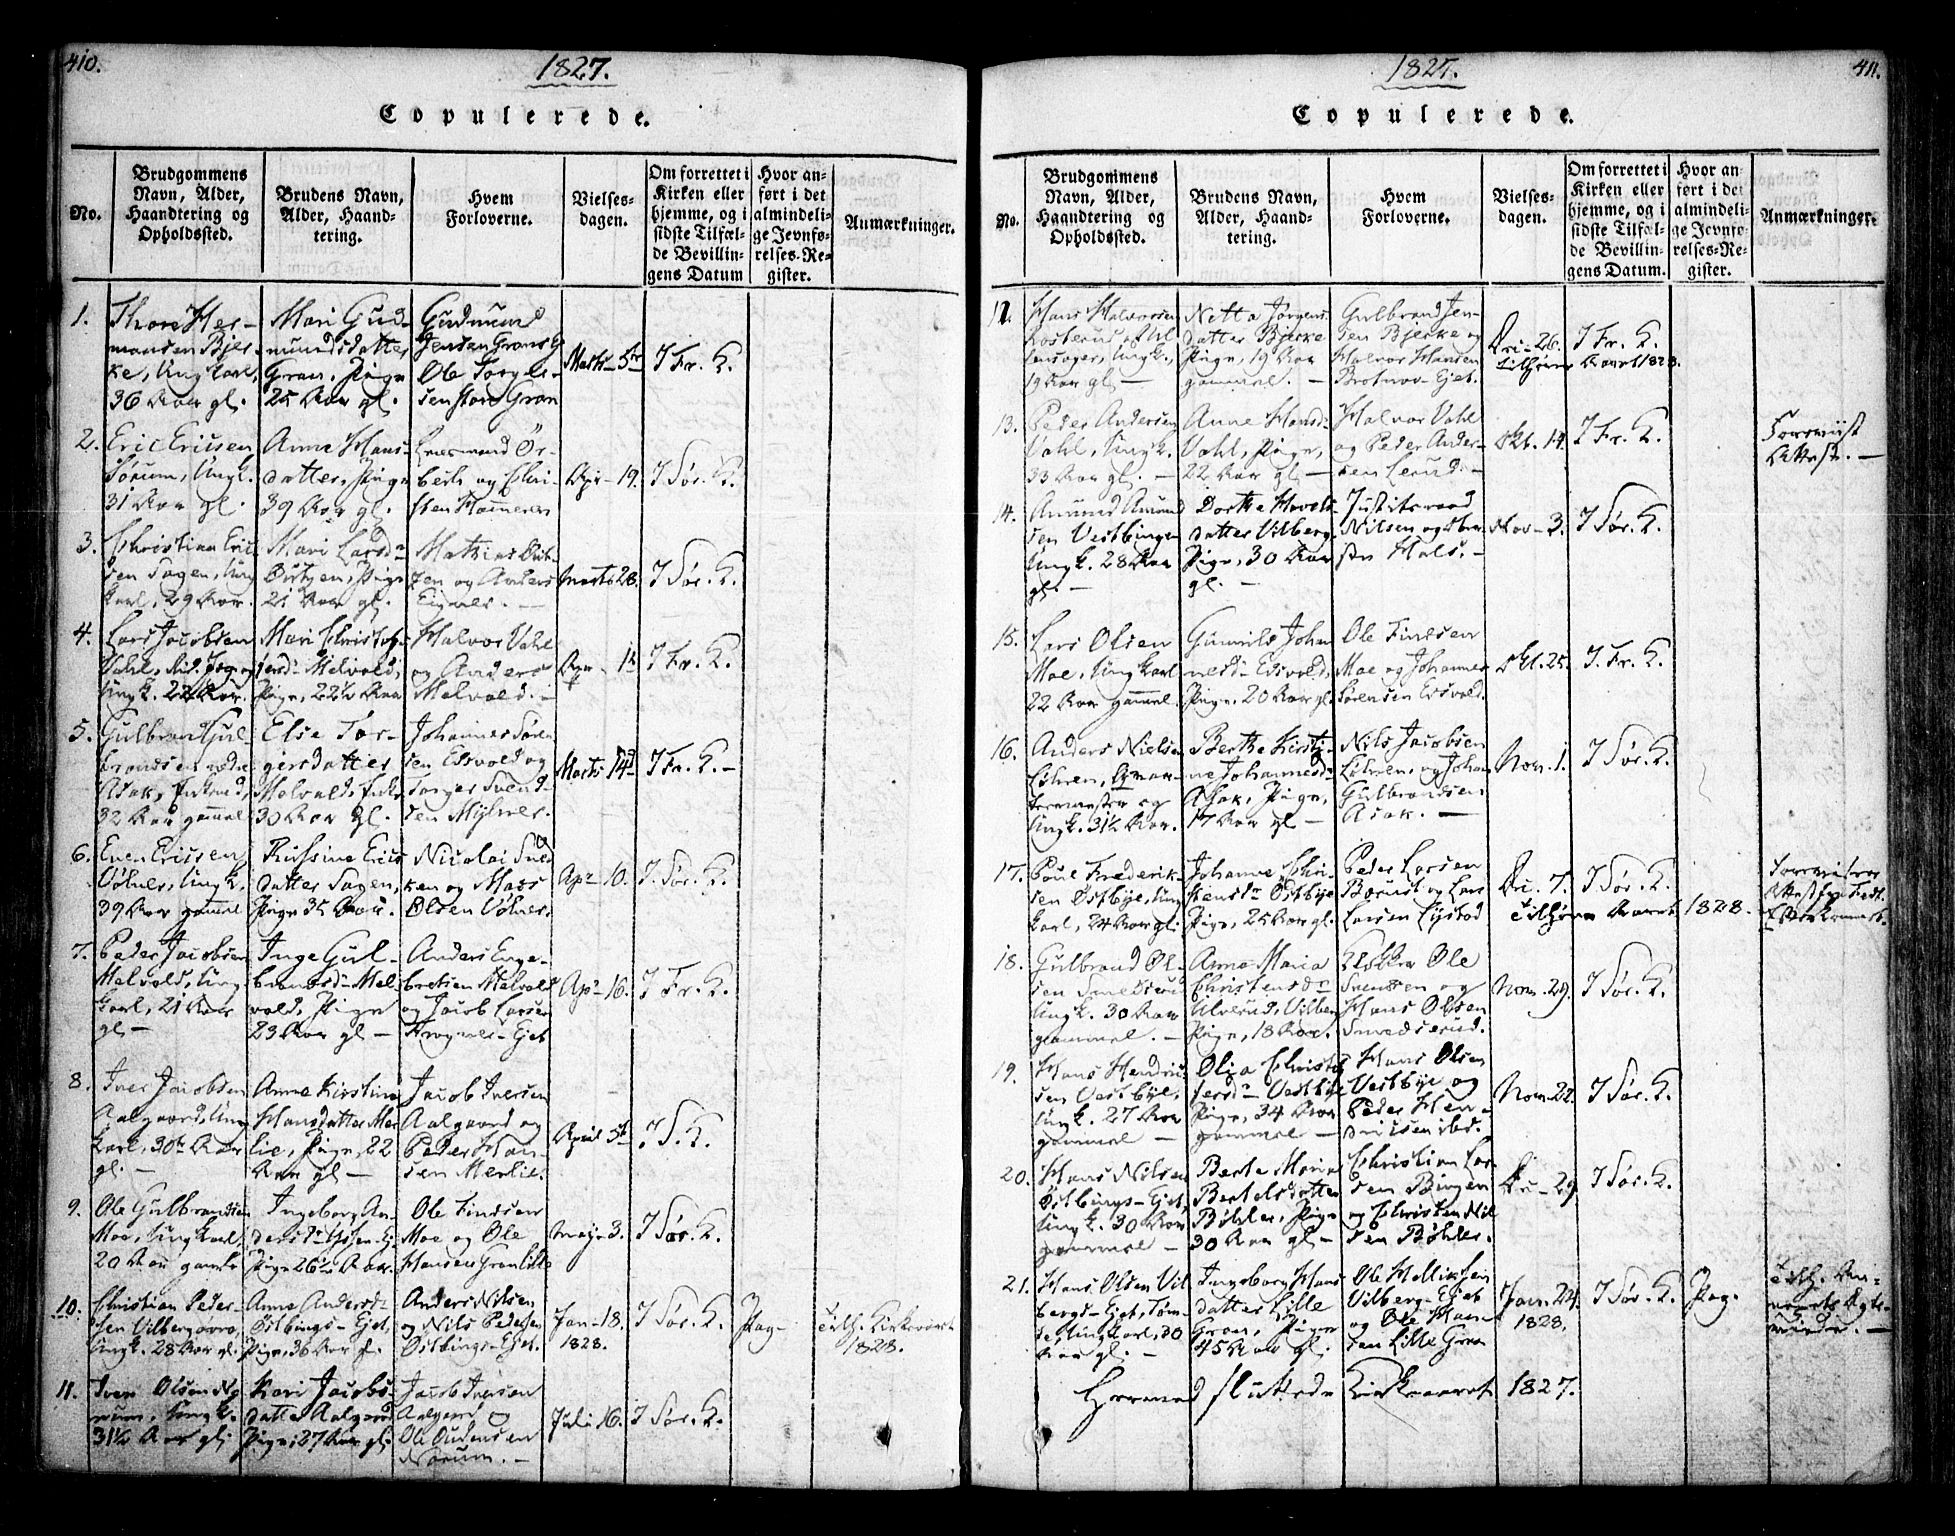 410.
1827.
Copulerede.
No.
Brudgommens
Navn, Alder,
Haandtering og
Opholdssted.
Brudens Navn,
Alder, Haand-
tering.
Hvem
Forloverne.
Vielses-
dagen.
Om forrettet i
Kirken eller
hjemme, og i
sidste Tilfæl-
de Bevillin-
gens Datum
Hvor an-
ført i det
almindeli-
ge Jevnfø-
relses-Re-
gister.
Anmærkninger.
1.
Thore Her-
mansen Bjer-
ke, Ungkarl,
36 Aar gl.
Mari Gud-
mundsdatter
Gran, Pige
25 Aar gl.
Gudmund
Jensen Grans E
Ole Torgls-
sen store Gran
Marts 5te
I Fr. K.
2.
Eric Ericsen
Sørum, Ungk.
31 Aar gl.
Anne Hans-
datter, Pige
39 Aar gl.
og Chri-
sten
Apr. 19.
I Sør. K.
3.
Christian Eric-
sen Sagen, Ung
karl, 29 Aar.
Mari Larsd.
Pige
21 Aar gl.
Mathias
og Anders
Marts 28.
I Sør. K.
4.
Lars Jacobsen
Vahl,
Ungk. 22 Aar.
Mari Christop-
fersd. Melvold,
Pige, 22½ Aar
Halvor Vahl
og Anders
Melvold. -
Apr.
I Fr. K.
5.
Gulbrand Gul-
brandsen nedre
Asak, Enkemd,
32 Aar gammel
Else Tor-
gersdatter
Melvold, Enke
30 Aar gl.
Johannes Søren
sen Edsvold og
Torger Svend-
sen Mylner.
Marts 14d
I Fr. K. -
6.
Even Ericsen
Vølner, Ungk.
39 Aar gammel
Thrine Erics
datter Sagen,
Pige 35 Aar.
Nicolai
og Mads
Olsen Vølner.
Apr. 10.
I. Sør. K.
7.
Peder Jacobsen
Melvold, Ung
karl, 21 Aar
gl -
Inge Gul-
brandsd. Mel-
vold, Pige
23 Aar gl -
Anders Enge-
bretsen Melvold
og Jacob Larsen
Ejet
Apr. 16.
I Fr. K.
8.
Iver Jacobsen
Aalgaard, Ung
karl, 30te Aar
gl. -
Anne Kirstine
Hansdatter Mer
lie, Pige, 22
Aar gl -
Jacob Iversen
Aalgaard og
Peder Han-
sen Merlie.
April 5t
I S. K.
9.
Ole Gulbrandsen
Moe, Ungkarl
20 Aar gamle
Ingeborg An-
dersd.
Pige 26½ Aar.
Ole Findsen
Moe og Ole
Hansen Gran lille
Maji 3.
I Sør. K.
10.
Christian Peder-
sen Vilbergøvre,
Ungk. 28 Aar gl.
Anne Andersd.
Østbings-Ejet,
Pige, 36 Aar g.
Anders Nilsen
og Nils Pedersen
Østbings-Ejet.
Jan. 18.
1828.
I Sør. K.
Pag.
tilh. Kirkeaaret
1828.
11.
Iver Olsen No
rum, Ungk.
31½ Aar gl.
Kari Jacobs-
datter Aalgaard
Pige, 27 Aar gl.
Jacob Iversen
Aalgaard og
Ole Oudensen
Norum. -
Juli 16.
I Sør. K.
1827.
411.
Copulerede.
No.
Brudgommens
Navn, Alder,
Haandtering og
Opholdssted.
Brudens Navn,
Alder, Haand-
tering.
Hvem
Forloverne.
Vielses-
dagen.
Om forrettet i
Kirken eller
hjemme, og i
sidste Tilfæl-
de Bevillin-
gens Datum.
Hvor an-
ført i det
almindeli-
ge Jevnfø-
relses-Re-
gister.
Anmærkninger.
12.
Hans Halvorsen
Ungk.
19 Aar gl -
Netta Jørgens
datter Bjerke
Pige, 19 Aar
gammel. -
Gulbrand Jen-
sen Bjerke og
Halvor Hansen
Ejet.
Dec. 26.
tilhører Aaret 1828.
I Fr. K.
13.
Peder Andersen
Vahl, Ungk.
33 Aar gl. -
Anne Hansd.
Vahl, Pige,
22 Aar gl. -
Halvor Vahl
og Peder Ander-
sen Lerud. -
Okt. 14.
I Fr. K.
Foreviist
Attest. -
14.
Amund Amund
sen Vestbingen
Ungk. 28 Aar
gl. -
Dorthe Hovels
datter Vilberg
Pige, 30 Aar
gl. -
Justitsraad
Nilsen og
Hals. -
Nov. 3.
I Sør. K.
15.
Lars Olsen
Moe, Ungkarl
22 Aar gammel.
Gunnild Johan
nesd. Edsvold,
Pige, 20 Aar gl.
Ole Findsen
Moe og Johannes
Sørensen Edsvold.
Okt. 25.
I. Fr. K.
16.
Anders Nielsen
og
Ungk. 31½ Aar.
Berthe Kirsti-
ne Johannesd.
Asak, Pige,
17 Aar gl -
Nils Jacobsen
og Johan
Gulbrandsen
Asak. -
Nov. 1.
I Sør. K.
17.
Poul Frederik-
sen Østbye, Ung
karl, 24 Aar gl.
Johanne Chri-
stensd. Østbye
Pige, 25 Aar gl.
Peder Larsen
og Lars
Larsen
Dec. 7.
tilhører Aaret 1828.
I Sør. K.
18.
Gulbrand Ol-
sen Smedserud
Ungk. 30 Aar
gammel. -
Anne Maria
Christensd.
Ulverud, Vilberg
Pige, 18 Aar.
Klokker Ole
Svendsen og
Hans Olsen
Smedserud.
Nov. 29.
I Sør. K.
19.
Hans Hendric
sen Vestbye,
Ungk. 27 Aar
gammel -
Olia Christof
fersd. Vestbye
Pige, 34 Aar
gammel -
Hans Olsen
Vestbye og
Peder Hen-
dricsen ibd.
Nov. 22.
I Sør. K.
20.
Hans Nilsen
Østbings-Ejet,
Ungk. 30 Aar
gammel -
Berte Maria
Bertelsdatter
Bøhler, Pige
30 Aar gl -
Christian Lar-
sen Bingen
og Christen Nil
sen Bøhler.
Dec. 29.
I Sør. K.
21.
Hans Olsen Vil
bergs-Ejet,
Ungkarl, 30
Aar gl. -
Ingeborg Hans
datter Lille
Gran, Pige
45 Aar gl.
Ole
Vilberg-Ejet
og Ole Han-
sen Lille Gran
Jan. 24.
1828.
I Sør. K.
Pag.
Hermed sluttede Kirkeaaret 1827.